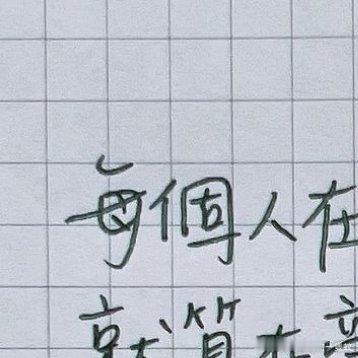 每個人在
就算在